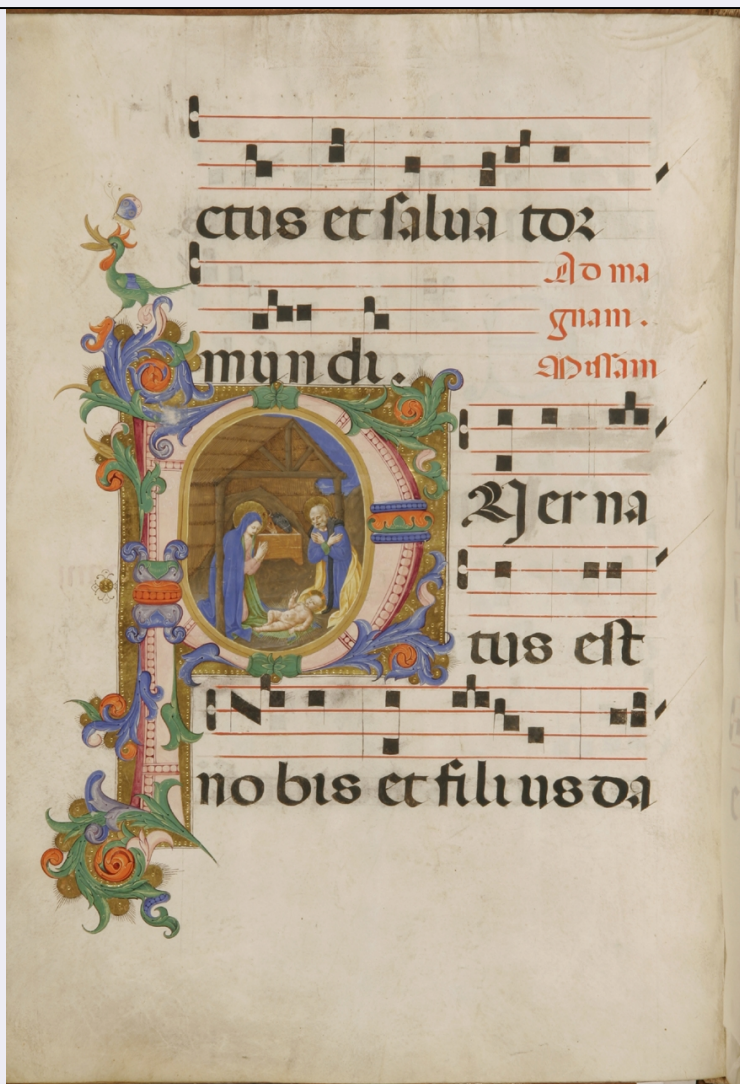 ctus et salua tor
Ad ma
gnam.
mundi.
Missam
PUer na
tus est
no bis et filius da